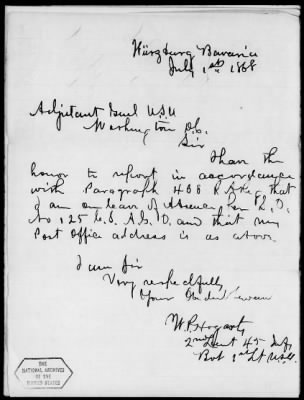 Würzburg Bavaria
July 1st 1868
Adjutant Genl U.S.A
Washington D.C.
Sir
I have the
honor to report in accordance
with Paragraph 468 R. that
I am on leave of Absence per S.O.
No 125 A.G.O. and that my
Post Office address is as above.
I am Sir
Very respectfully
Your Obedient Servant
W.P. Hogarty
2nd Lieut 45 Inf.
Bvt 1st Lt U.S.A.
THE
NATIONAL ARCHIVES
OF THE
UNITED STATES